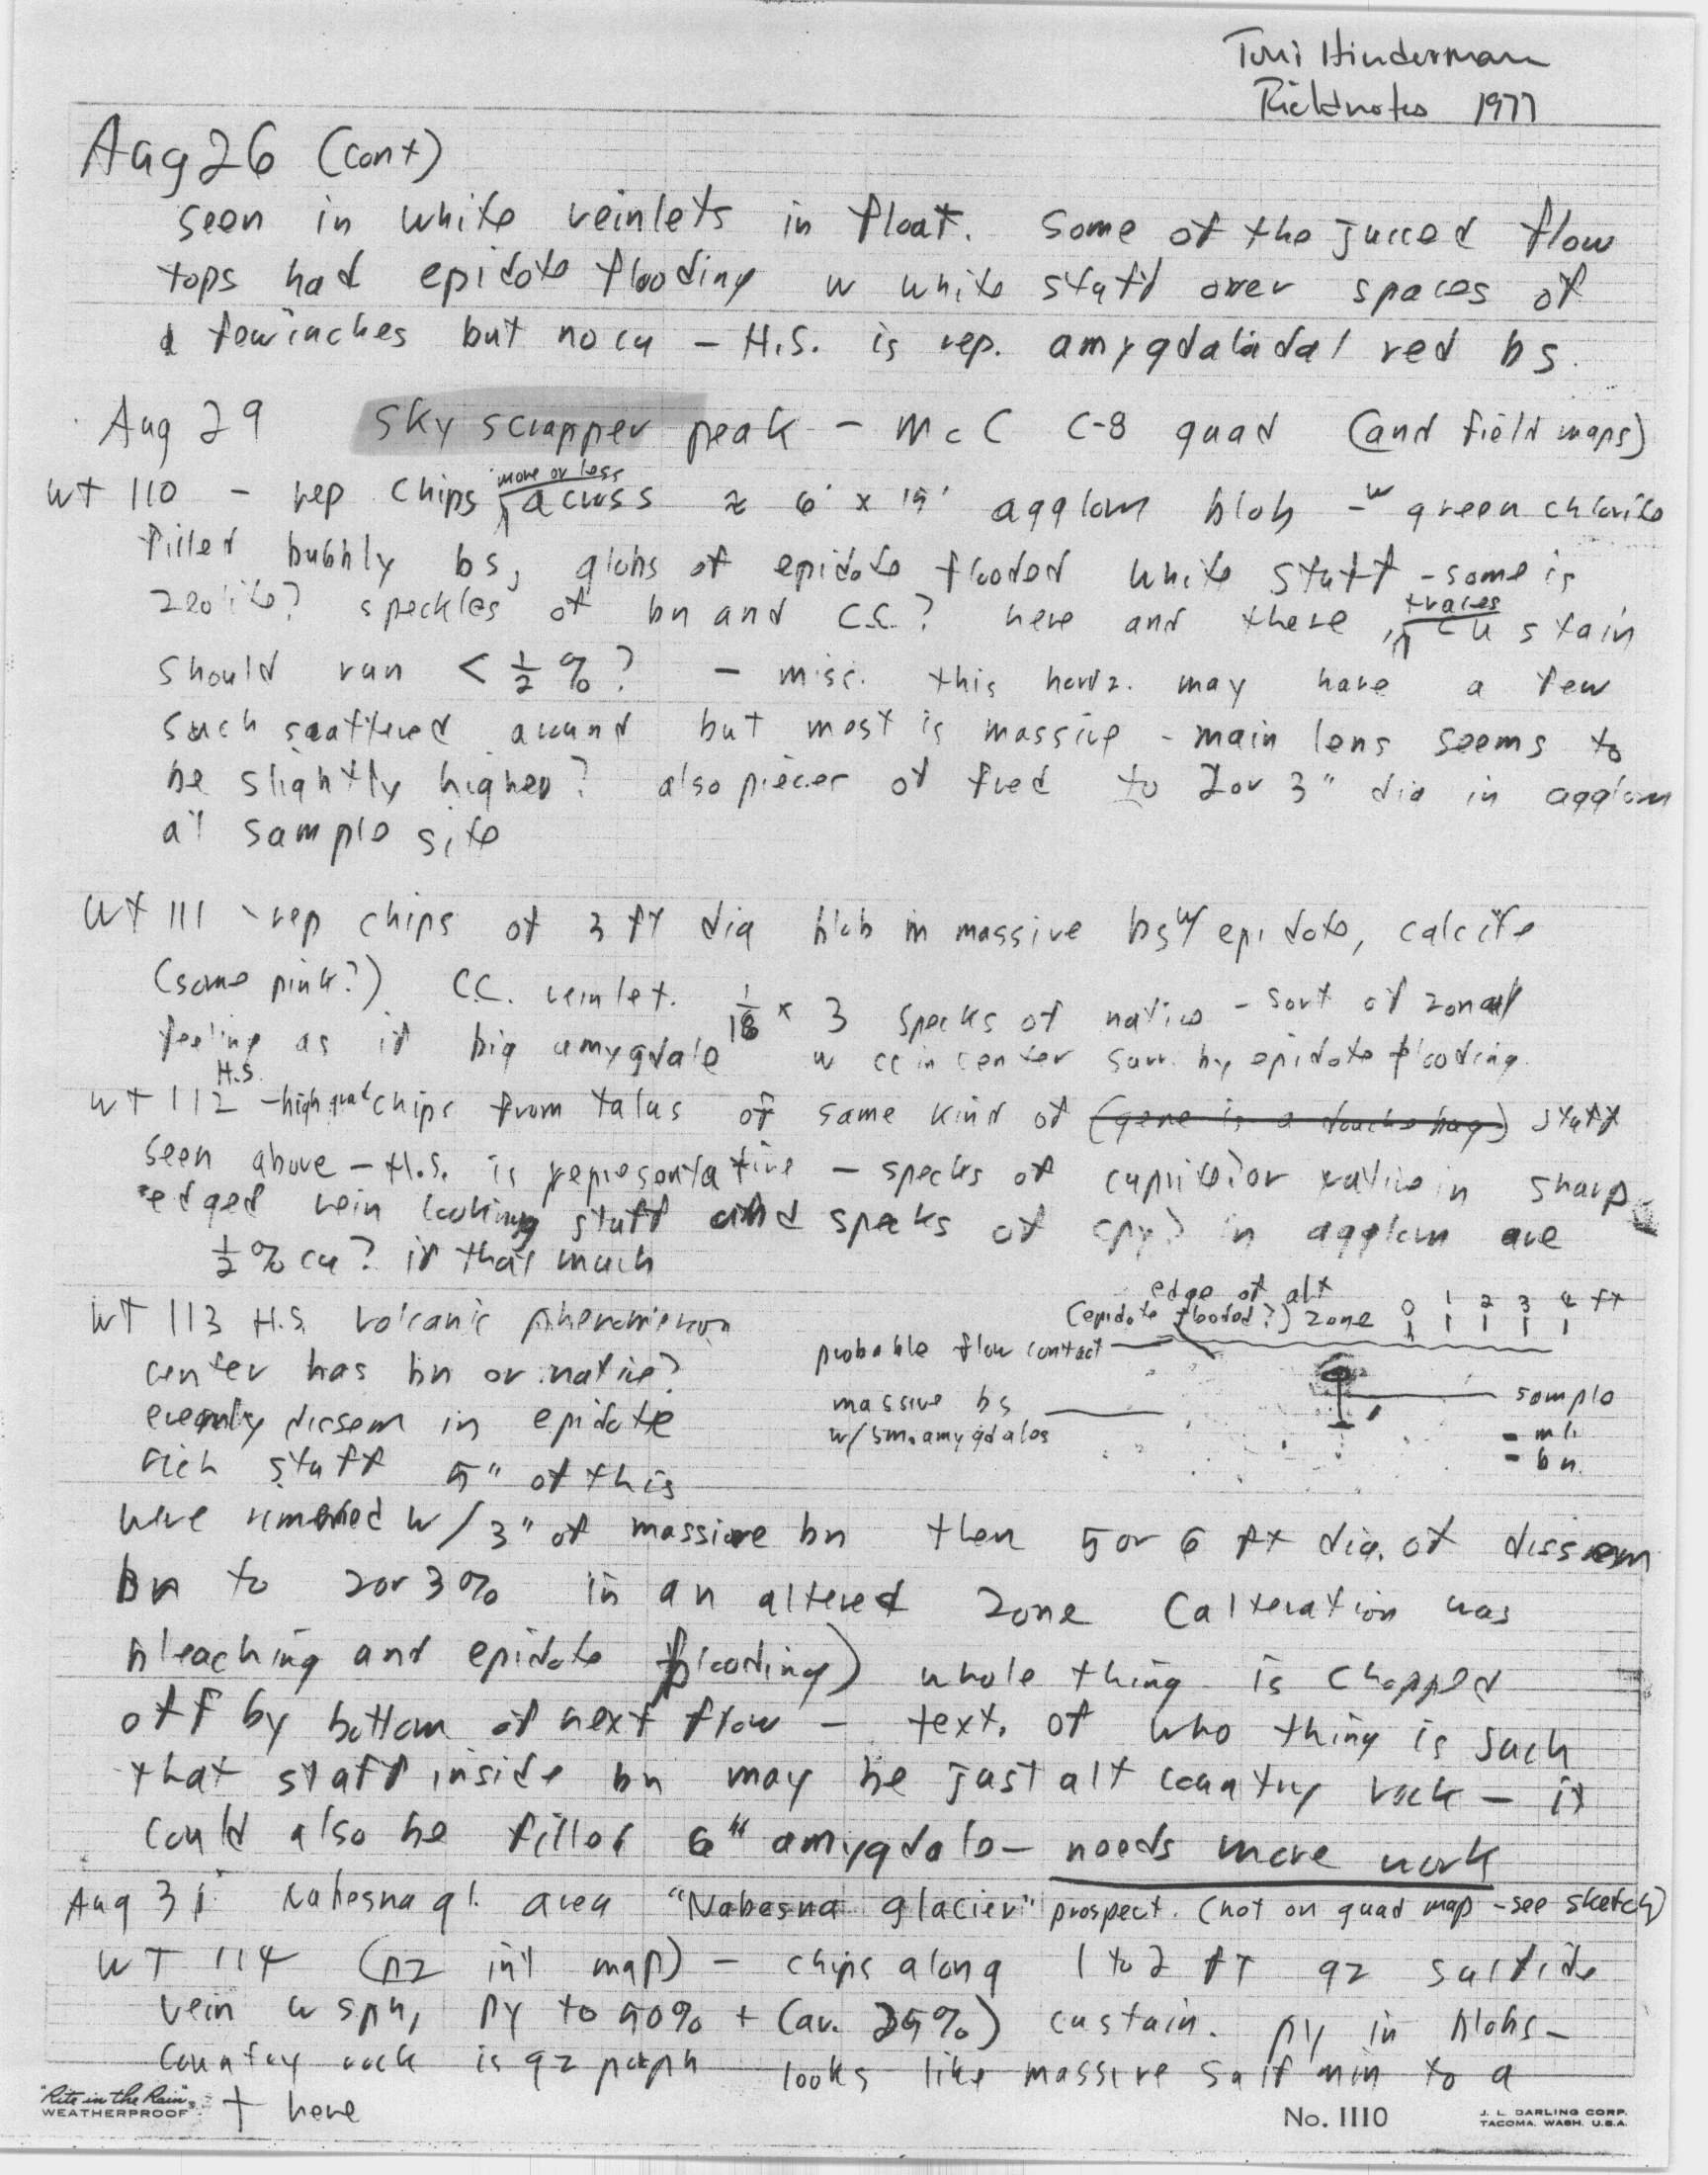 Toni Hinderman
Fieldnotes 1977
Aug 26 (cont)
seen in white veinlets in float. Some of the juiced flow
tops had epidote flooding w white stuff over spaces of
a few inches but no cu - H.S. is rep. amygdaloidal red bs.
Aug 29 Sky scrapper peak - McC C-8 quad (and field maps)
more or less
WT 110 - rep chips across ≈ 6' x 15' agglom blob - w green chlorite
filled bubbly bs, globs of epidote flooded white stuff - some is
zeolite? speckles of bn and c.c.? here and there traces cu stain
should run < 1/2 %? - misc. this horiz. may have a few
such scattered around but most is massive - main lens seems to
be slightly higher? also pieces of fred to 2 or 3" dia in agglom
at sample site
WT 111 - rep chips of 3 ft dia blob in massive bs w/ epidote, calcite
(some pink?) C.C. veinlet. 1/18 x 3 specks of native - sort of zonal
feeling as if big amygdale w cc in center surr. by epidote flooding.
H.S.
WT 112 - high grad chips from talus of same kind of (gene is a douche bag) stuff
seen above - H.S. is representative - specks of cuprite? or native in sharp
edged vein looking stuff and specks of cpy? in agglom are
1/2 % cu? if that much
WT 113 H.S. volcanic phenomenon
center has bn or native?
evenly dissem in epidote
rich stuff 5" of this
edge of alt
(epidote flooded?) zone 0 1 2 3 4 ft
probable flow contact
massive bs
w/ sm. amygdales
sample
= ml.
= bn.
were removed w/ 3" of massive bn then 5 or 6 ft dia. of dissem
bn to 2 or 3% in an altered zone (alteration was
bleaching and epidote flooding) whole thing is chopped
off by bottom of next flow - text. of who thing is such
that stuff inside bn may be just alt country rock - it
could also be filled 6" amygdale - needs more work
Aug 31 Nabesna gl. area "Nabesna glacier" prospect. (not on quad map - see sketch)
WT 114 (pz int map) - chips along 1 to 2 ft qz sulfide
vein w sph, py to 50% + (av. 25%) custain. py in blobs -
country rock is qz porph looks like massive sulf min to a
+ here
"Rite in the Rain"
WEATHERPROOF
No. 1110
J. L. DARLING CORP.
TACOMA, WASH. U.S.A.